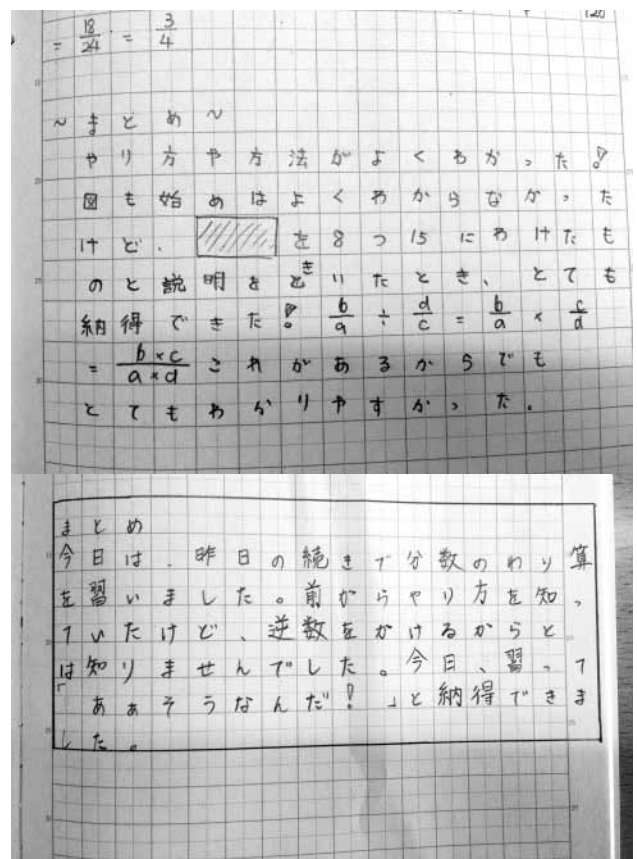 = 18/24 = 3/4
120
~ まとめ ~
やり方や方法がよくわかった!
図も始めはよくわからなかった
けど、 を8つ15にわけたも
のと説明をときいたとき、とても
納得できた! b/a ÷ d/c = b/a × c/d
= b×c/a×d これがあるからでも
とてもわかりやすかった。
まとめ
今日は、昨日の続きで分数のわり算
を習いました。前からやり方を知っ
ていたけど、逆数をかけるからと
は知りませんでした。今日、習って
「あぁそうなんだ!」と納得できま
した。